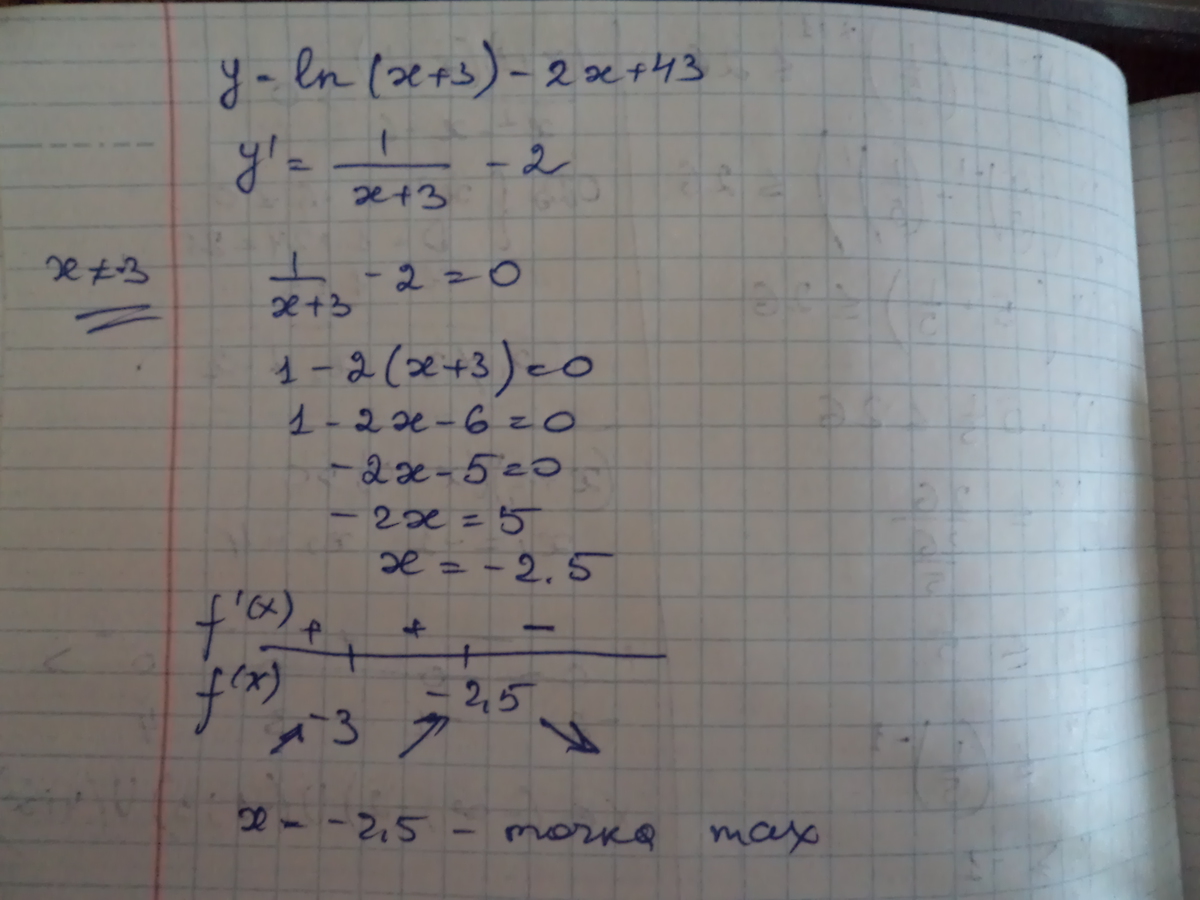 y = ln (x+3) - 2x+43
y' = 1/(x+3) - 2
x ≠ -3
1/(x+3) - 2 = 0
1 - 2(x+3) = 0
1 - 2x - 6 = 0
- 2x - 5 = 0
- 2x = 5
x = - 2.5
f'(x) + + -
f(x) -3 -2,5
x = -2,5 - точка max